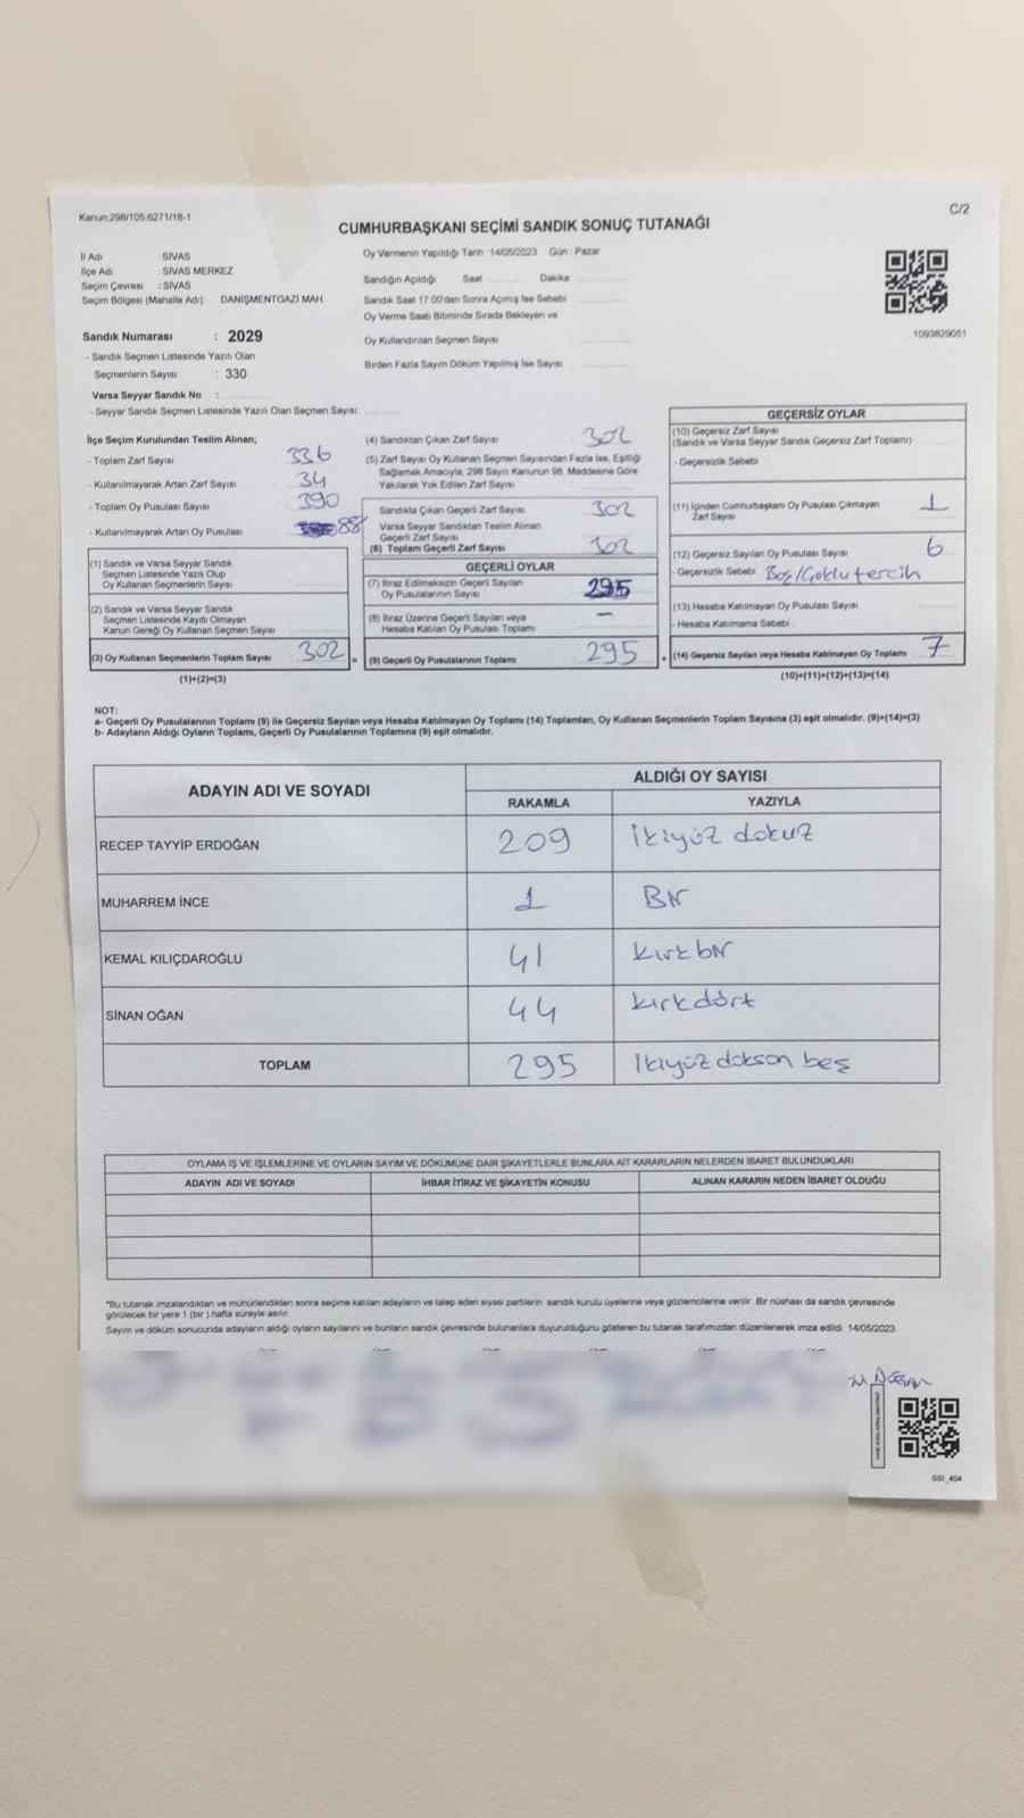 Kanun:298/105.6271/18-1
C/2
CUMHURBAŞKANI SEÇİMİ SANDIK SONUÇ TUTANAĞI
İl Adı SİVAS
İlçe Adı : SİVAS MERKEZ
Seçim Çevresi : SİVAS
Seçim Bölgesi (Mahalle Adı) DANIŞMENTGAZİ MAH.
Sandık Numarası : 2029
- Sandık Seçmen Listesinde Yazılı Olan
Seçmenlerin Sayısı : 330
Varsa Seyyar Sandık No :
- Seyyar Sandık Seçmen Listesinde Yazılı Olan Seçmen Sayısı:
Oy Vermenin Yapıldığı Tarih : 14/05/2023 Gün : Pazar
Sandığın Açıldığı Saat Dakika
Sandık Saat 17:00'dan Sonra Açılmış İse Sebebi
Oy Verme Saati Bitiminde Sırada Bekleyen ve
Oy Kullandırılan Seçmen Sayısı
Birden Fazla Sayım Döküm Yapılmış İse Sayısı
1093829051
İlçe Seçim Kurulundan Teslim Alınan;
- Toplam Zarf Sayısı 336
- Kullanılmayarak Artan Zarf Sayısı 34
- Toplam Oy Pusulası Sayısı 390
- Kullanılmayarak Artan Oy Pusulası 88
(1) Sandık ve Varsa Seyyar Sandık
Seçmen Listesinde Yazılı Olup
Oy Kullanan Seçmenlerin Sayısı
(2) Sandık ve Varsa Seyyar Sandık
Seçmen Listesinde Kayıtlı Olmayan
Kanun Gereği Oy Kullanan Seçmen Sayısı
(3) Oy Kullanan Seçmenlerin Toplam Sayısı 302
(1)+(2)=(3)
(4) Sandıktan Çıkan Zarf Sayısı 302
(5) Zarf Sayısı Oy Kullanan Seçmen Sayısından Fazla İse, Eşitliği
Sağlamak Amacıyla, 298 Sayılı Kanunun 98. Maddesine Göre
Yakılarak Yok Edilen Zarf Sayısı
Sandıkta Çıkan Geçerli Zarf Sayısı 302
Varsa Seyyar Sandıktan Teslim Alınan
Geçerli Zarf Sayısı
(6) Toplam Geçerli Zarf Sayısı 302
GEÇERLİ OYLAR
(7) İtiraz Edilmeksizin Geçerli Sayılan
Oy Pusulalarının Sayısı 295
(8) İtiraz Üzerine Geçerli Sayılan veya
Hesaba Katılan Oy Pusulası Toplamı –
(9) Geçerli Oy Pusulalarının Toplamı 295
GEÇERSİZ OYLAR
(10) Geçersiz Zarf Sayısı
(Sandık ve Varsa Seyyar Sandık Geçersiz Zarf Toplamı)
- Geçersizlik Sebebi
(11) İçinden Cumhurbaşkanı Oy Pusulası Çıkmayan
Zarf Sayısı 1
(12) Geçersiz Sayılan Oy Pusulası Sayısı 6
- Geçersizlik Sebebi Boş/Çoklu tercih
(13) Hesaba Katılmayan Oy Pusulası Sayısı
- Hesaba Katılmama Sebebi
(14) Geçersiz Sayılan veya Hesaba Katılmayan Oy Toplamı 7
(10)+(11)+(12)+(13)=(14)
NOT:
a- Geçerli Oy Pusulalarının Toplamı (9) ile Geçersiz Sayılan veya Hesaba Katılmayan Oy Toplamı (14) Toplamları, Oy Kullanan Seçmenlerin Toplam Sayısına (3) eşit olmalıdır. (9)+(14)=(3)
b- Adayların Aldığı Oyların Toplamı, Geçerli Oy Pusulalarının Toplamına (9) eşit olmalıdır.
ADAYIN ADI VE SOYADI ALDIĞI OY SAYISI
RAKAMLA YAZIYLA
RECEP TAYYİP ERDOĞAN 209 İkiyüz dokuz
MUHARREM İNCE 1 Bir
KEMAL KILIÇDAROĞLU 41 kırkbir
SİNAN OĞAN 44 kırkdört
TOPLAM 295 İkiyüz doksan beş
OYLAMA İŞ VE İŞLEMLERİNE VE OYLARIN SAYIM VE DÖKÜMÜNE DAİR ŞİKAYETLERLE BUNLARA AİT KARARLARIN NELERDEN İBARET BULUNDUKLARI
ADAYIN ADI VE SOYADI İHBAR İTİRAZ VE ŞİKAYETİN KONUSU ALINAN KARARIN NEDEN İBARET OLDUĞU
*Bu tutanak imzalandıktan ve mühürlendikten sonra seçime katılan adayların ve talep eden siyasi partilerin sandık kurulu üyelerine veya gözlemcilerine verilir. Bir nüshası da sandık çevresinde
görülecek bir yere 1 (bir) hafta süreyle asılır.
Sayım ve döküm sonucunda adayların aldığı oyların sayılarını ve bunların sandık çevresinde bulunanlara duyurulduğunu gösteren bu tutanak tarafımızdan düzenlenerek imza edildi. 14/05/2023
GSI_404